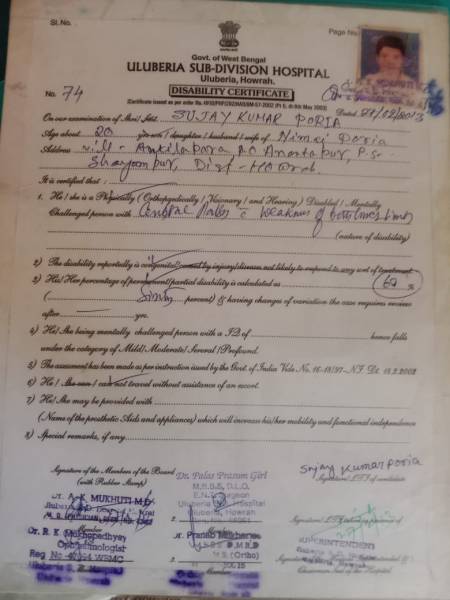 Sl. No.
Page No.
Govt. of West Bengal
ULUBERIA SUB-DIVISION HOSPITAL
Uluberia, Howrah.
No. 74
DISABILITY CERTIFICATE
Dated 27/02/2013
On our examination of Shri/Smt. SUJAY KUMAR PORIA
Age about 20 yrs son / daughter / husband / wife of Nimai Poria
Address Vill- Ankilapara PO Anantapur, P.S-
Shyampur, Dist- Howrah
It is certified that :
1. He / she is a Physically (Orthopedically / Visionary / and Hearing) Disabled / Mentally
Challenged person with Cerebral Palsy c weakness of both lower limbs
(nature of disability)
2) The disability reportedly is congenital/caused by injury/disease not likely to respond to any sort of treatment.
3) His/Her percentage of permanent/partial disability is calculated as 60 %
( Sixty percent) & having chances of variation the case requires review
after yrs.
4) He/She being mentally challenged person with a I.Q. of hence falls
under the category of Mild/Moderate/Several/Profound.
5) The assessment has been made as per instruction issued by the Govt. of India Vide No. 16-18/97-NI Dt. 18.2.2002
6) He / She can / can not travel without assistance of an escort.
7) He/She may be provided with
(Name of the prosthetic Aids and appliances) which will increase his/her mobility and functional independence
8) Special remarks, if any
Signature of the Members of the Board
(with Rubber Stamp)
Dr. Palas Prasum Giri
M.B.B.S, D.L.O.
E.N.T. Surgeon
Uluberia S.D. Hospital
Uluberia, Howrah
Sujay Kumar Poria
Signature/LTI of candidate
Dr. A. K. MUKHUTI M.D.
Dr. R. K. Mukhopadhyay
Ophthalmologist
Reg No WBMC
2.
Dr. Pranab Mukherjee
M.B.B.S D.M.R.D
M.S. (Ortho)
SUPERINTENDENT